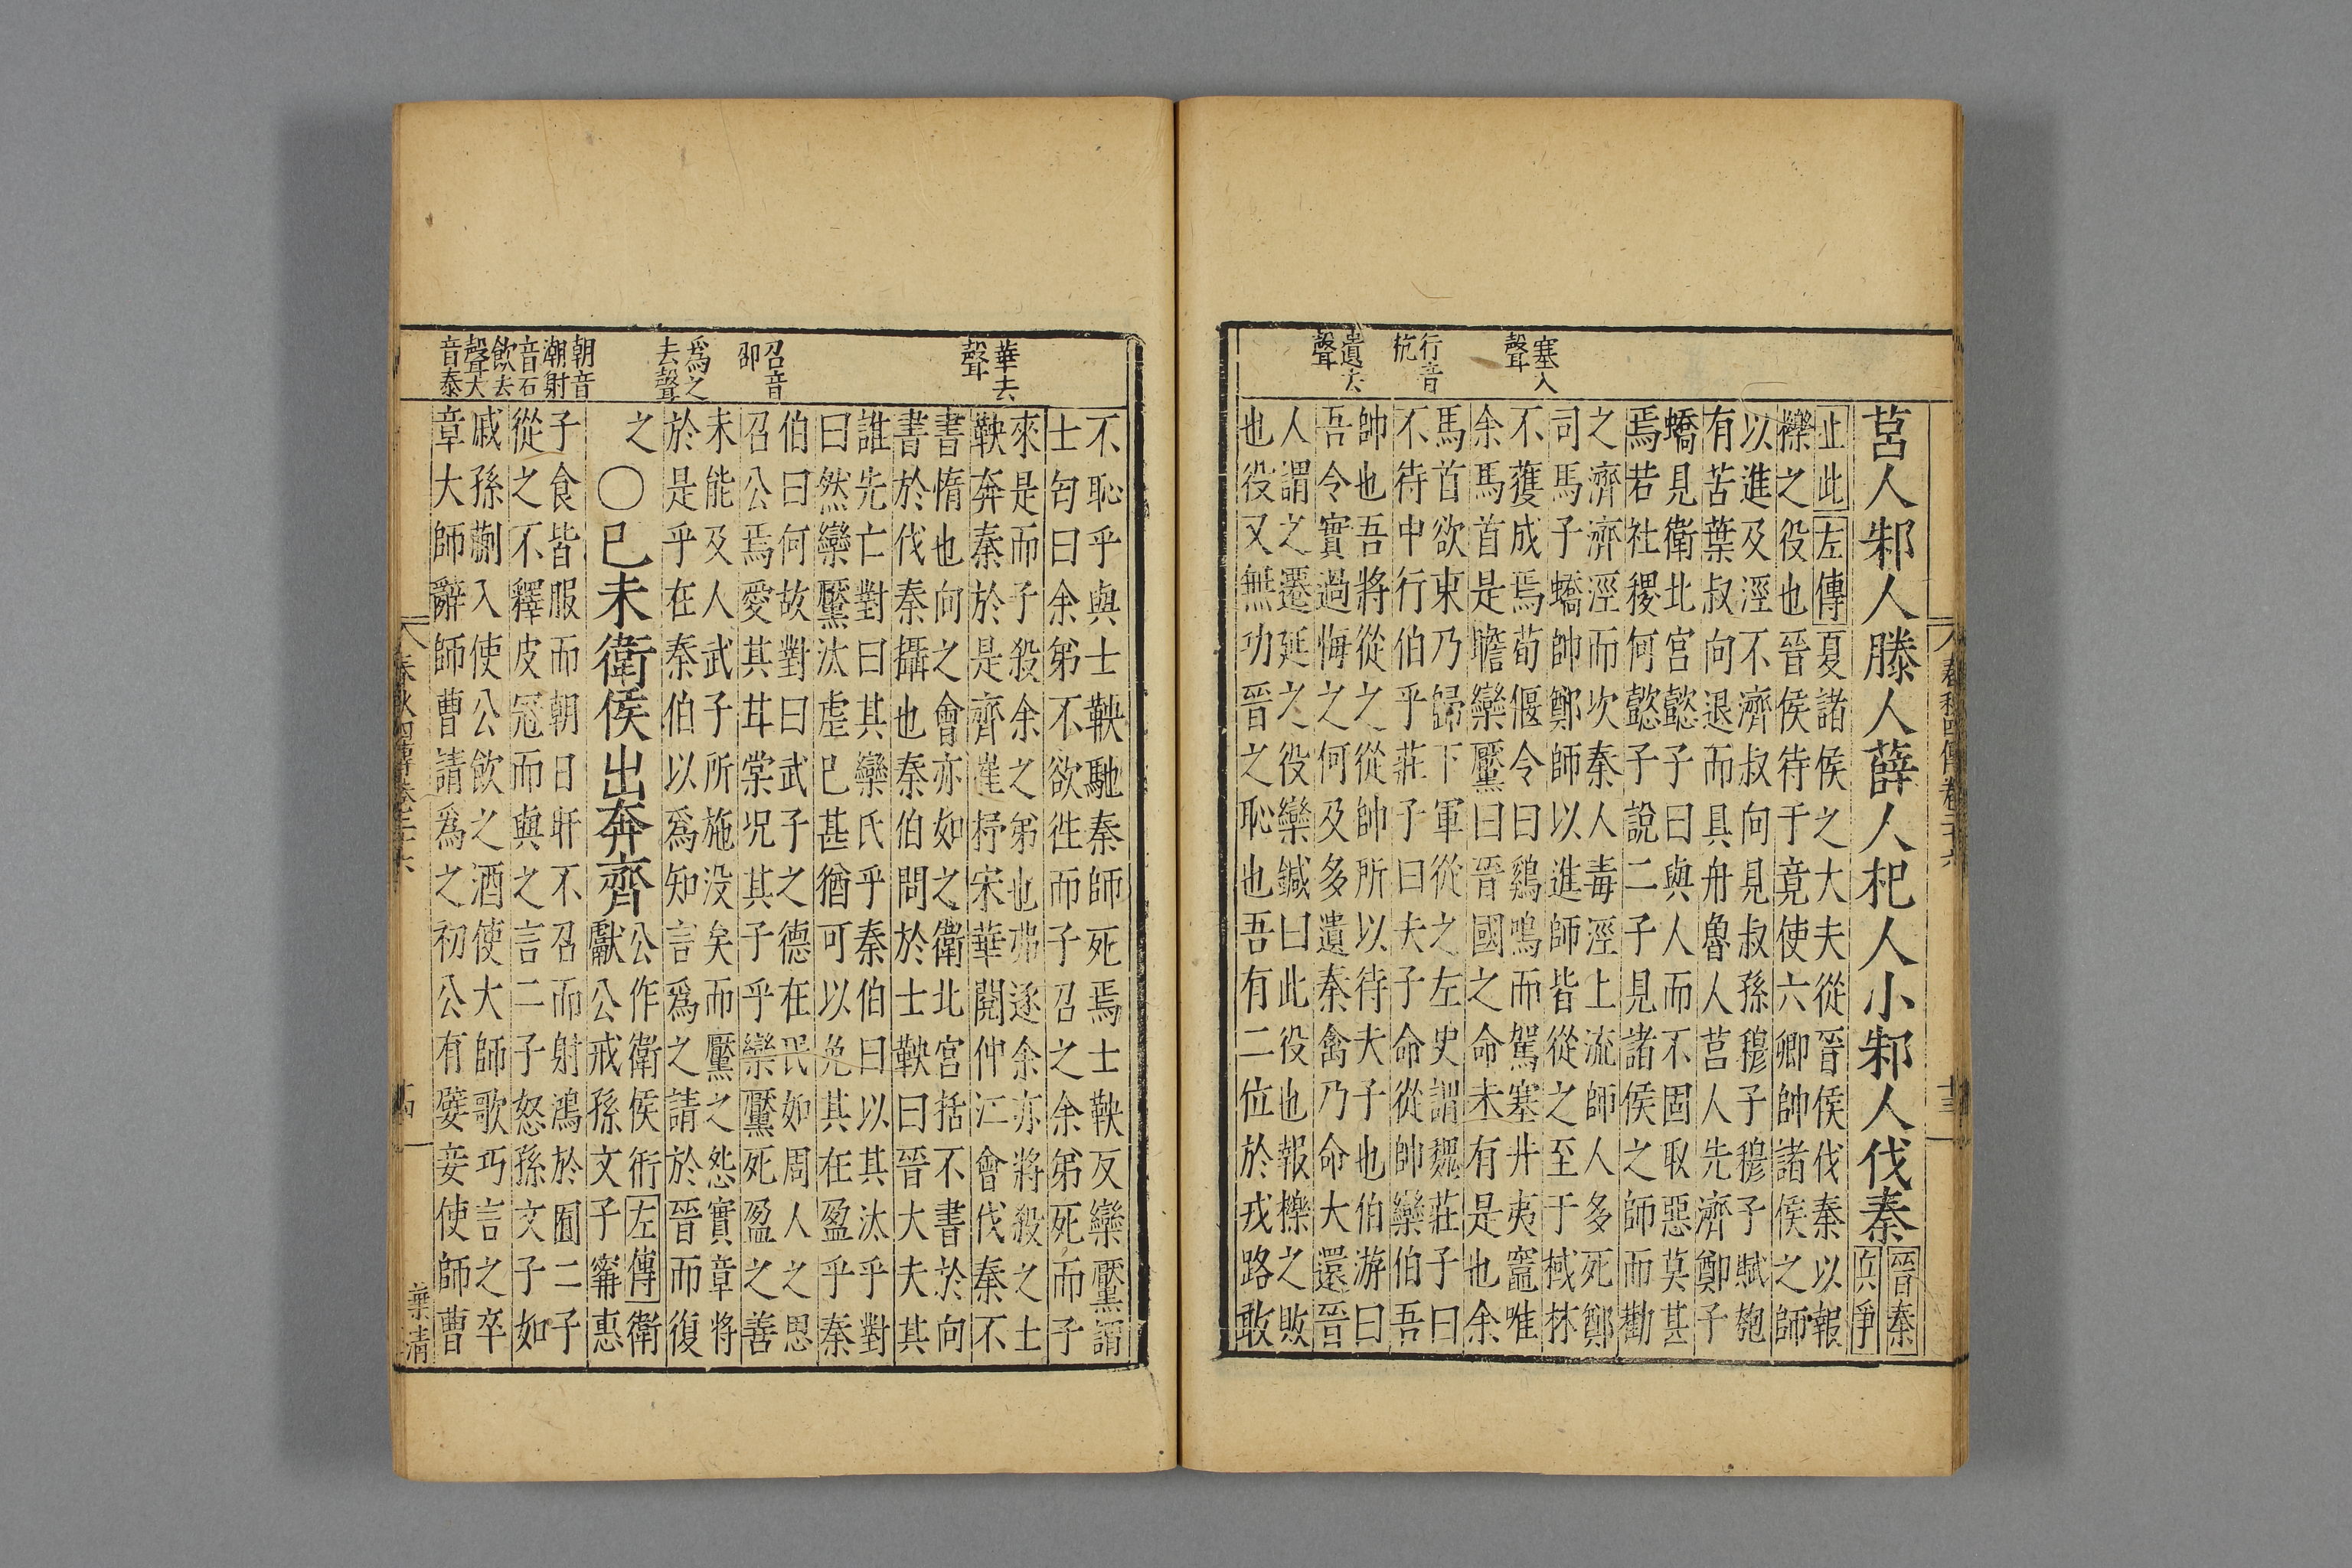 春秋四傳卷二十六
十三
莒人邾人滕人薛人杞人小邾人伐秦
晉秦
兵爭
止此左傳夏諸侯之大夫從晉侯伐秦以報
櫟之役也晉侯待于竟使六卿帥諸侯之師
以進及涇不濟叔向見叔孫穆子穆子賦匏
有苦葉叔向退而具舟魯人莒人先濟鄭子
蟜見衛北宮懿子曰與人而不固取惡莫甚
焉若社稷何懿子說二子見諸侯之師而勸
之濟濟涇而次秦人毒涇上流師人多死鄭
司馬子蟜帥鄭師以進師皆從之至于棫林
塞入
聲
不獲成焉荀偃令曰鷄鳴而駕塞井夷竈唯
余馬首是瞻欒黶曰晉國之命未有是也余
行音
杭
馬首欲東乃歸下軍從之左史謂魏莊子曰
不待中行伯乎莊子曰夫子命從帥欒伯吾
遺去
聲
帥也吾將從之從帥所以待夫子也伯游曰
吾令實過悔之何及多遺秦禽乃命大還晉
人謂之遷延之役欒鍼曰此役也報櫟之敗
也役又無功晉之恥也吾有二位於戎路敢
不恥乎與士鞅馳秦師死焉士鞅反欒黶謂
士匄曰余弟不欲徃而子召之余弟死而子
華去
聲
來是而子殺余之弟也弗逐余亦將殺之士
鞅奔秦於是齊崔杼宋華閱仲江會伐秦不
書惰也向之會亦如之衛北宮括不書於向
書於伐秦攝也秦伯問於士鞅曰晉大夫其
誰先亡對曰其欒氏乎秦伯曰以其汰乎對
曰然欒黶汰虐已甚猶可以免其在盈乎秦
召音
卲
伯曰何故對曰武子之德在民如周人之思
召公焉愛其甘棠况其子乎欒黶死盈之善
爲之
去聲
未能及人武子所施没矣而黶之怨實章將
於是乎在秦伯以爲知言爲之請於晉而復
之
○己未衛侯出奔齊
公作衛侯衎左傳衛
獻公戒孫文子甯惠
朝音
潮射
音石
飲去
聲大
音泰
子食皆服而朝日旰不召而射鴻於囿二子
從之不釋皮冠而與之言二子怒孫文子如
戚孫蒯入使公飲之酒使大師歌巧言之卒
章大師辭師曹請爲之初公有嬖妾使師曹
春秋四傳卷二十六
十四
葉清